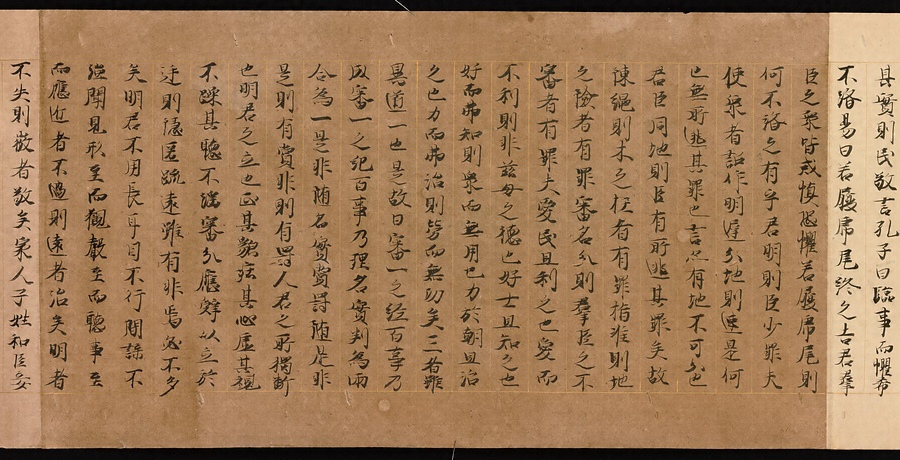 其實則民敬言孔子曰臨事而懼希
不濟易曰若履虎尾終之吉若羣
臣之衆皆戒慎恐懼若履虎尾則
何不濟之有乎君明則臣少罪夫
使衆者詔作明遅分地則速是何
也無所逃其罪也言亦有地不可分也
君臣同地則臣有所逃其罪矣故
陳繩則木之枉者有罪措准則地
之險者有罪審名分則羣臣之不
審者有罪夫愛民且利之也愛而
不利則非慈母之德也好士且知之也
好而弗知則衆而無用也力於朝且治
之也力而弗治則勞而無功矣三者雖
異道一也是故曰審一之經百事乃
成審一之紀百事乃理名實判為兩
合為一是非随名實賞罸随是非
是則有賞非則有罸人君之所獨断
也明君之立也正其貌荘其心虚其視
不躁其聽不淫審分應辞以立於
廷則隱匿疏遠雖有非焉必不多
矣明君不用長耳目不行間諜不
強聞見形至而觀聲至而聽事至
而應近者不過則遠者治矣明者
不失則微者敬矣家人子姪和臣妾